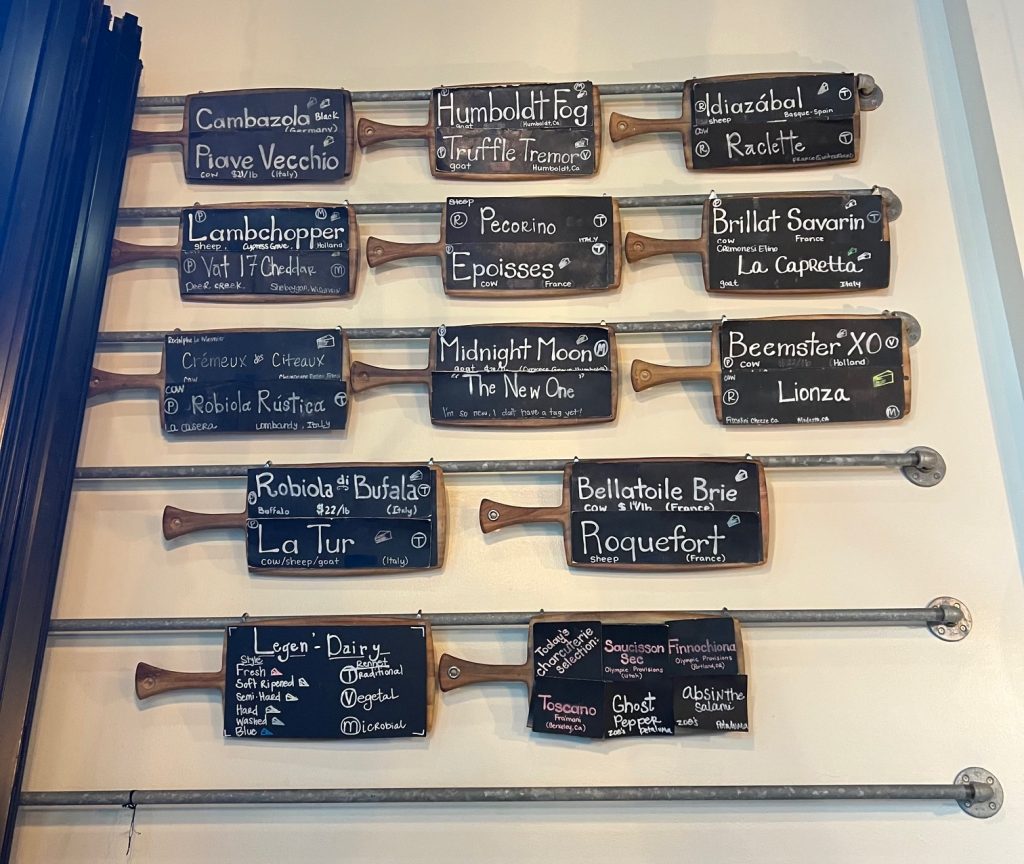 Cambazola Black
(Germany)
Piave Vecchio
cow $21/lb (Italy)
Humboldt Fog
goat Humboldt, Ca
Truffle Tremor
goat Humboldt, Ca
Idiazábal
sheep Basque-Spain
cow
Raclette
Lambchopper
sheep, Cypress Grove, Holland
Vat 17 Cheddar
Deer creek. Sheboygan, Wisconsin
sheep
Pecorino
ITALY
Epoisses
cow (France)
Brillat Savarin
cow France
Cremonesi Elino
La Capretta
goat Italy
Rodolphe Le Meunier
Crémeux des Citeaux
cow
cow
Robiola Rústica
La Casera Lombardy, Italy
Midnight Moon
goat
"The New One"
I'm so new, I don't have a tag yet!
Beemster XO
cow (Holland)
cow
Lionza
Fiscalini Cheese Co Modesto, CA
Robiola di Bufala
Buffalo $22/lb (Italy)
La Tur
cow/sheep/goat (Italy)
Bellatoile Brie
cow $14/lb (France)
Roquefort
sheep (France)
Legen'-Dairy
Style
Fresh
Soft Ripened
Semi-Hard
Hard
Washed
Blue
Rennet
Traditional
Vegetal
Microbial
Today's
charcuterie
selection:
Saucisson
Sec
Olympic Provisions
(Utah)
Finnochiona
Olympic Provisions
(Portland, OR)
Toscano
Fra'mani
(Berkeley, CA)
Ghost
Pepper
zoe's Petaluma
absinthe
salami
zoe's Petaluma